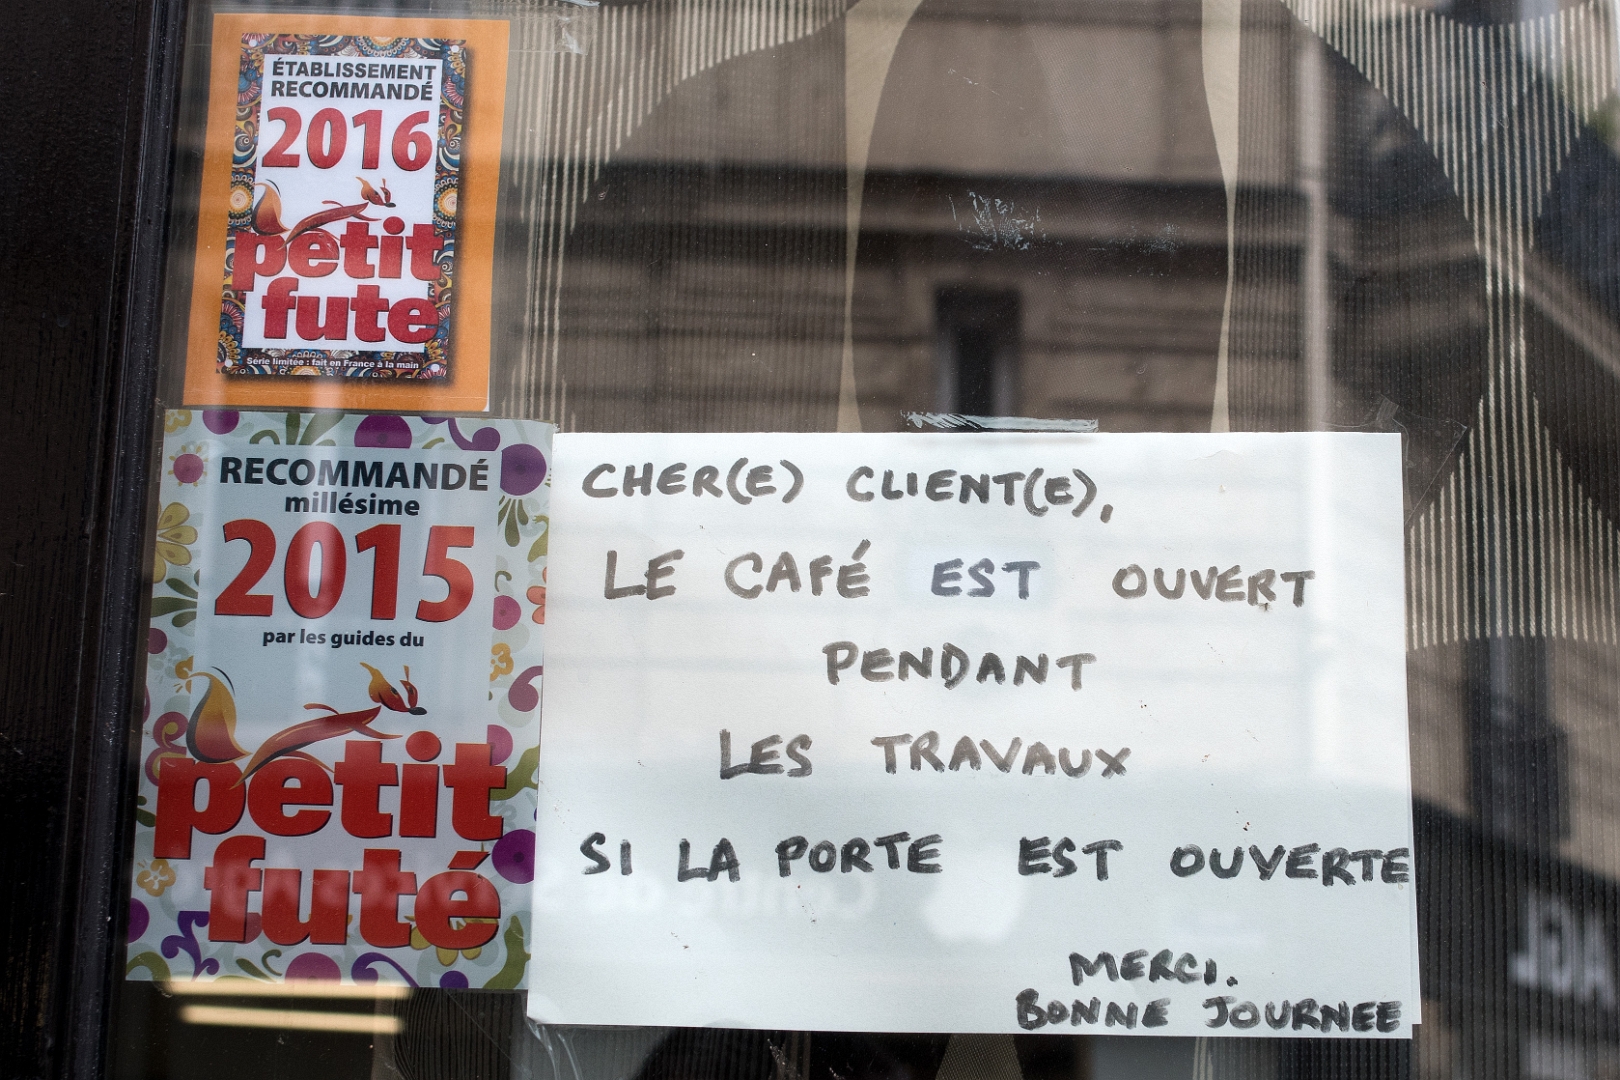 ÉTABLISSEMENT
RECOMMANDÉ
2016
petit
fute
Série limitée : fait en France à la main
RECOMMANDÉ
millésime
2015
par les guides du
petit
futé
CHER(E) CLIENT(E),
LE CAFÉ EST OUVERT
PENDANT
LES TRAVAUX
SI LA PORTE EST OUVERTE
MERCI.
BONNE JOURNEE